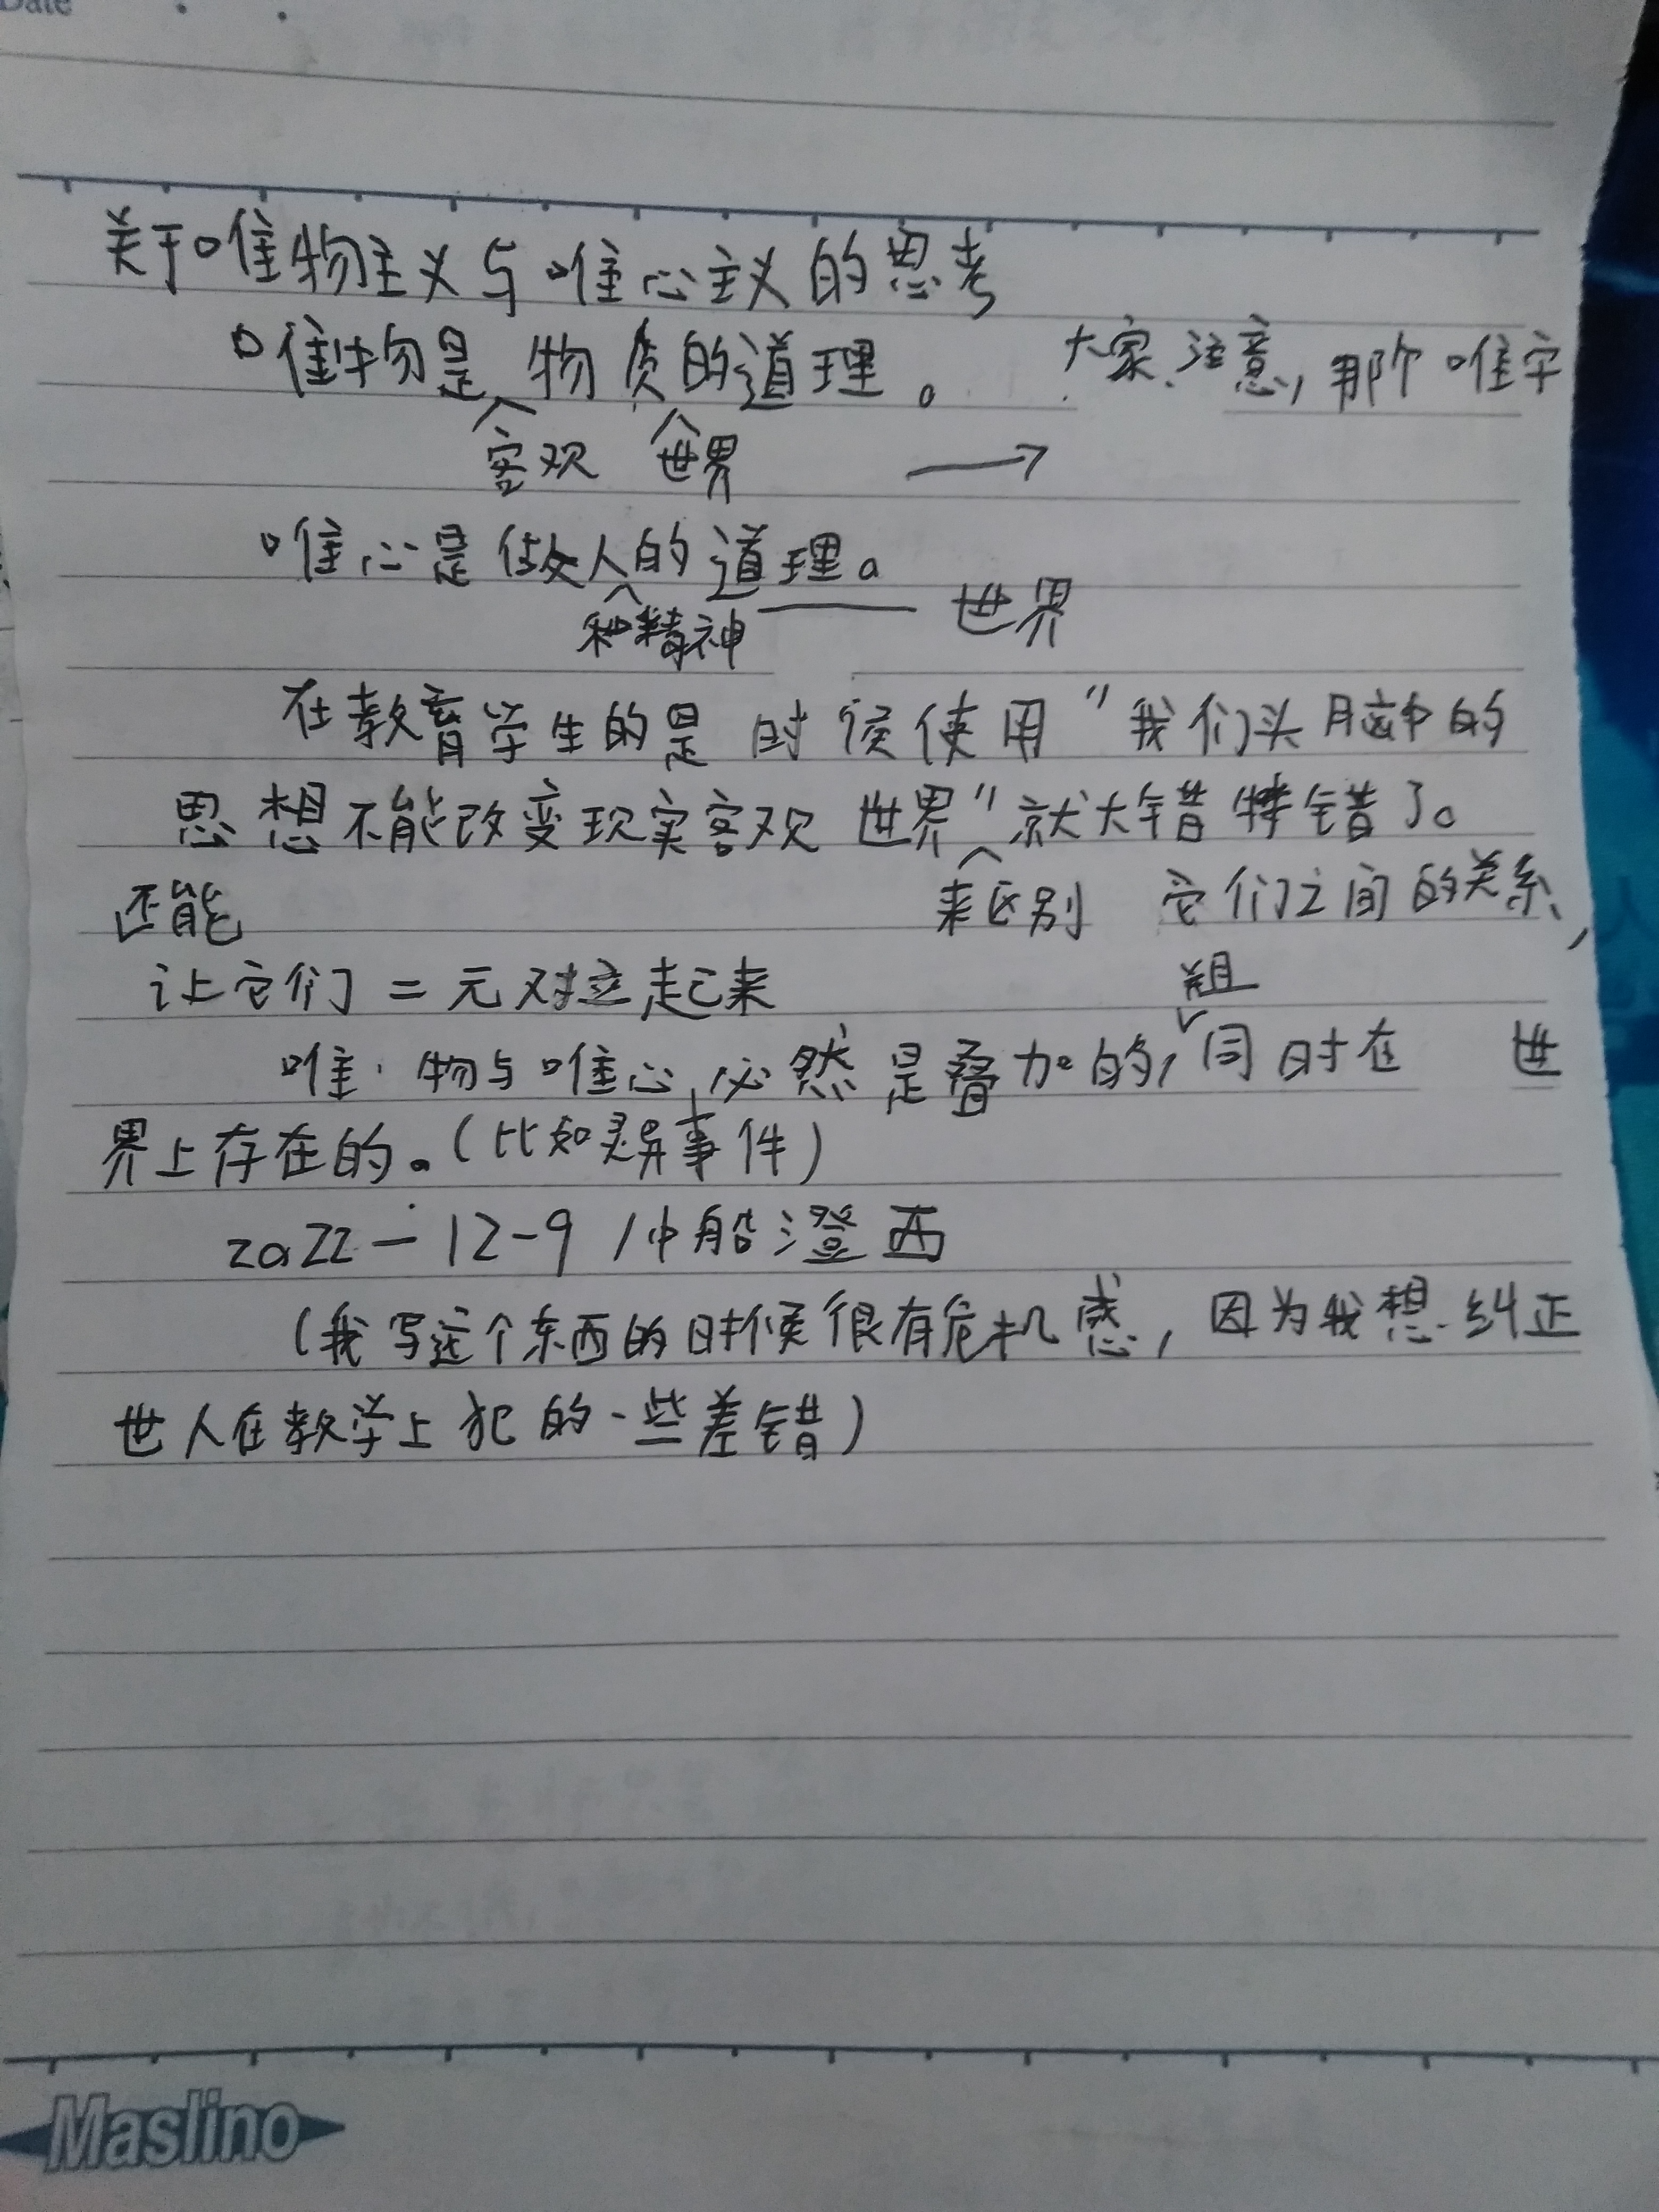 Date
关于唯物主义与唯心主义的思考
唯物是物质的道理。 大家注意,那个唯字
客观 世界 →
唯心是做人的道理。
和精神 —— 世界
在教育学生的是时候使用"我们头脑中的
思想不能改变现实客观世界"就大错特错了。
还能 来区别 它们之间的关系,
让它们二元对立起来
组
唯物与唯心必然是叠加的,同时在 世
界上存在的。(比如灵异事件)
2022-12-9 中船澄西
(我写这个东西的时候很有危机感,因为我想纠正
世人在教学上犯的一些差错)
Maslino